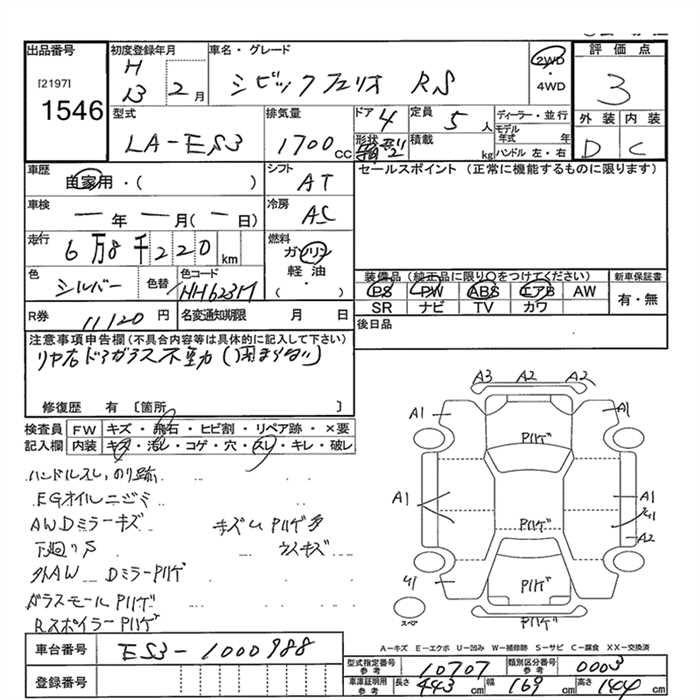 出品番号
[2197]
1546
初度登録年月
H
13 2 月
車名・グレード
シビックフェリオ RS
2WD
・
4WD
評価点
3
外装 内装
D C
型式
LA-ES3
排気量
1700 cc
ドア
4
形状
箱型
定員
5 人
積載
kg
ディーラー・並行
モデル
年式 年
ハンドル 左・右
車歴
自家用・( )
シフト
AT
セールスポイント (正常に機能するものに限ります)
車検
— 年 — 月 ( — 日)
冷房
AC
走行
6 万 8 千 220 km
燃料
ガソリン
軽油
( )
色
シルバー
色替
色コード
NH623M
装備品 (純正品に限り○をつけてください)
PS PW ABS エアB AW
SR ナビ TV カワ
新車保証書
有・無
R券
11120 円
名変通知期限 月 日
後日品
注意事項申告欄 (不具合内容等は具体的に記入して下さい)
リヤ右ドアガラス不動
修復歴 有 〔箇所 〕
検査員
記入欄
FW キズ・飛石・ヒビ割・リペア跡・×要
内装 キズ・汚レ・コゲ・穴・スレ・キレ・破レ
ハンドルスレ、のり跡
EGオイルニジミ
AWDミラーキズ キズUPハゲ多
下廻りS ウスキズ
外AW DミラーPハゲ
ガラスモールPハゲ
RスポイラーPハゲ
A3 A2 A2
A1 A1
Pハゲ
A1 A1
A2
Pハゲ
Pハゲ
Pハゲ
スペア
A-キズ E-エクボ U-凹み W-補修跡 S-サビ C-腐食 XX-交換済
車台番号
ES3-1000988
登録番号
型式指定番号
参考
10707
類別区分番号
参考
0003
車庫証明用
参考
長さ 443 cm 幅 169 cm 高さ 144 cm